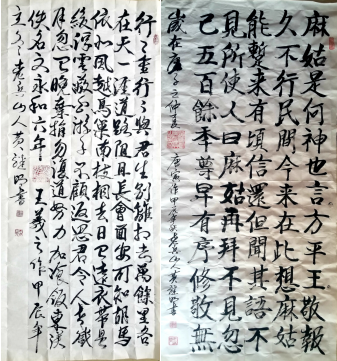 麻姑是何神也言方平王敬報
久不行民間今来在此想麻姑
能暫来有頃信還但聞其語不
見所使人曰麻姑再拜不見忽
已五百餘年尊卑有序修敬無
歲在
行〻重行〻與君生別離相去萬餘里各
在天一涯道路阻且長會面安可知胡馬
依北風越鳥巢南枝相去日已遠衣帶日
緩浮雲蔽白日游子不顧返思君令人老歲
月忽已晚棄捐勿復道努力加餐飯東漢
佚名文永和六年王羲之作甲辰年
立冬老兵山人黃